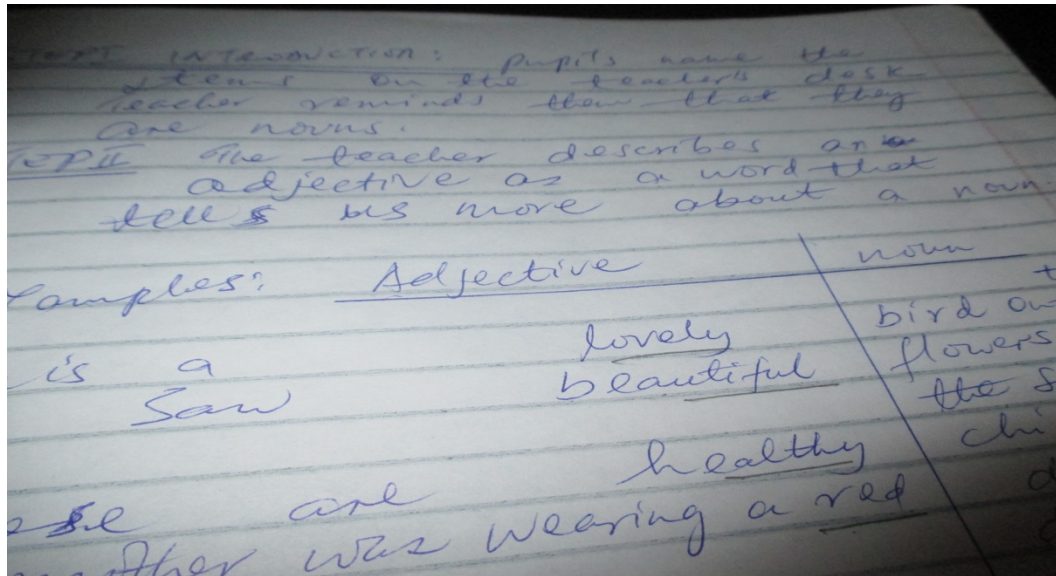 INTRODUCTION: Pupils name the
items on the teacher's desk
teacher reminds them that they
are nouns.
STEP II The teacher describes an
adjective as a word that
tells us more about a noun.
Examples: Adjective noun
is a lovely bird on
saw beautiful flowers
the
are healthy
was wearing a red